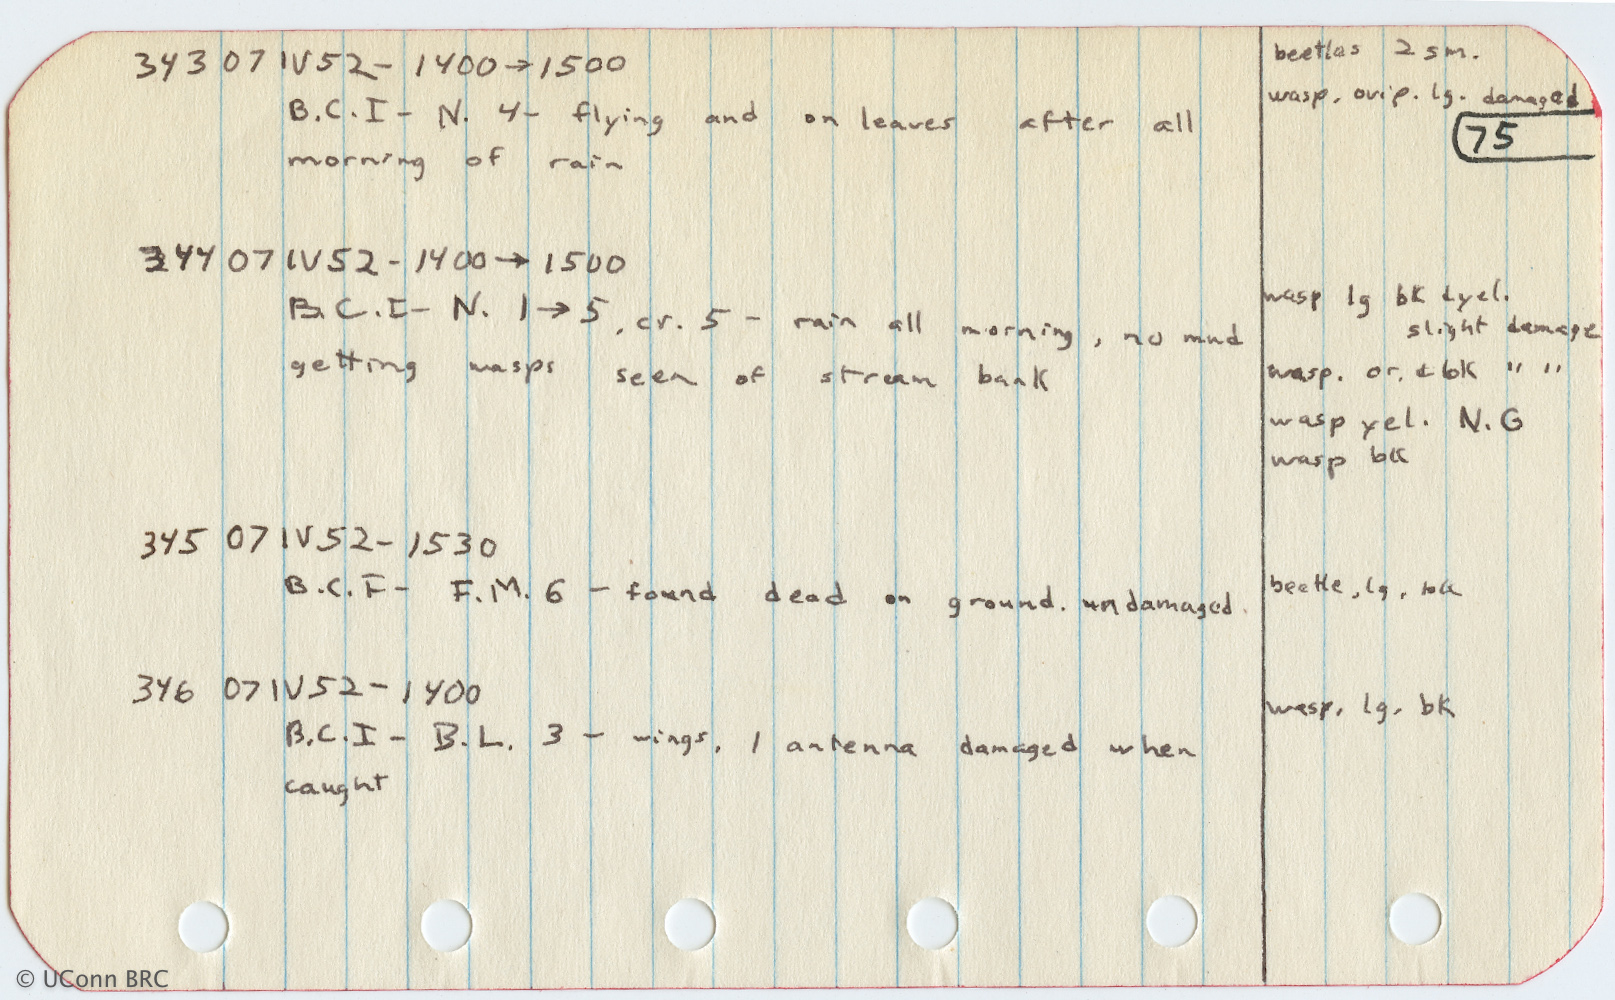 343 07 IV 52 - 1400 → 1500
B.C.I - N. 4 - flying and on leaves after all
morning of rain
beetles 2 sm.
wasp, ovip. lg. damaged
75
344 07 IV 52 - 1400 → 1500
B.C.I - N. 1 → 5, cr. 5 - rain all morning, no mud
getting wasps seen of stream bank
wasp lg bk & yel.
slight damage
wasp. or. & bk " "
wasp yel. N.G
wasp bk
345 07 IV 52 - 1530
B.C.F - F.M. 6 - found dead on ground. undamaged.
beetle, lg, bk
346 07 IV 52 - 1400
B.C.I - B.L. 3 - wings, 1 antenna damaged when
caught
wasp, lg, bk
© UConn BRC